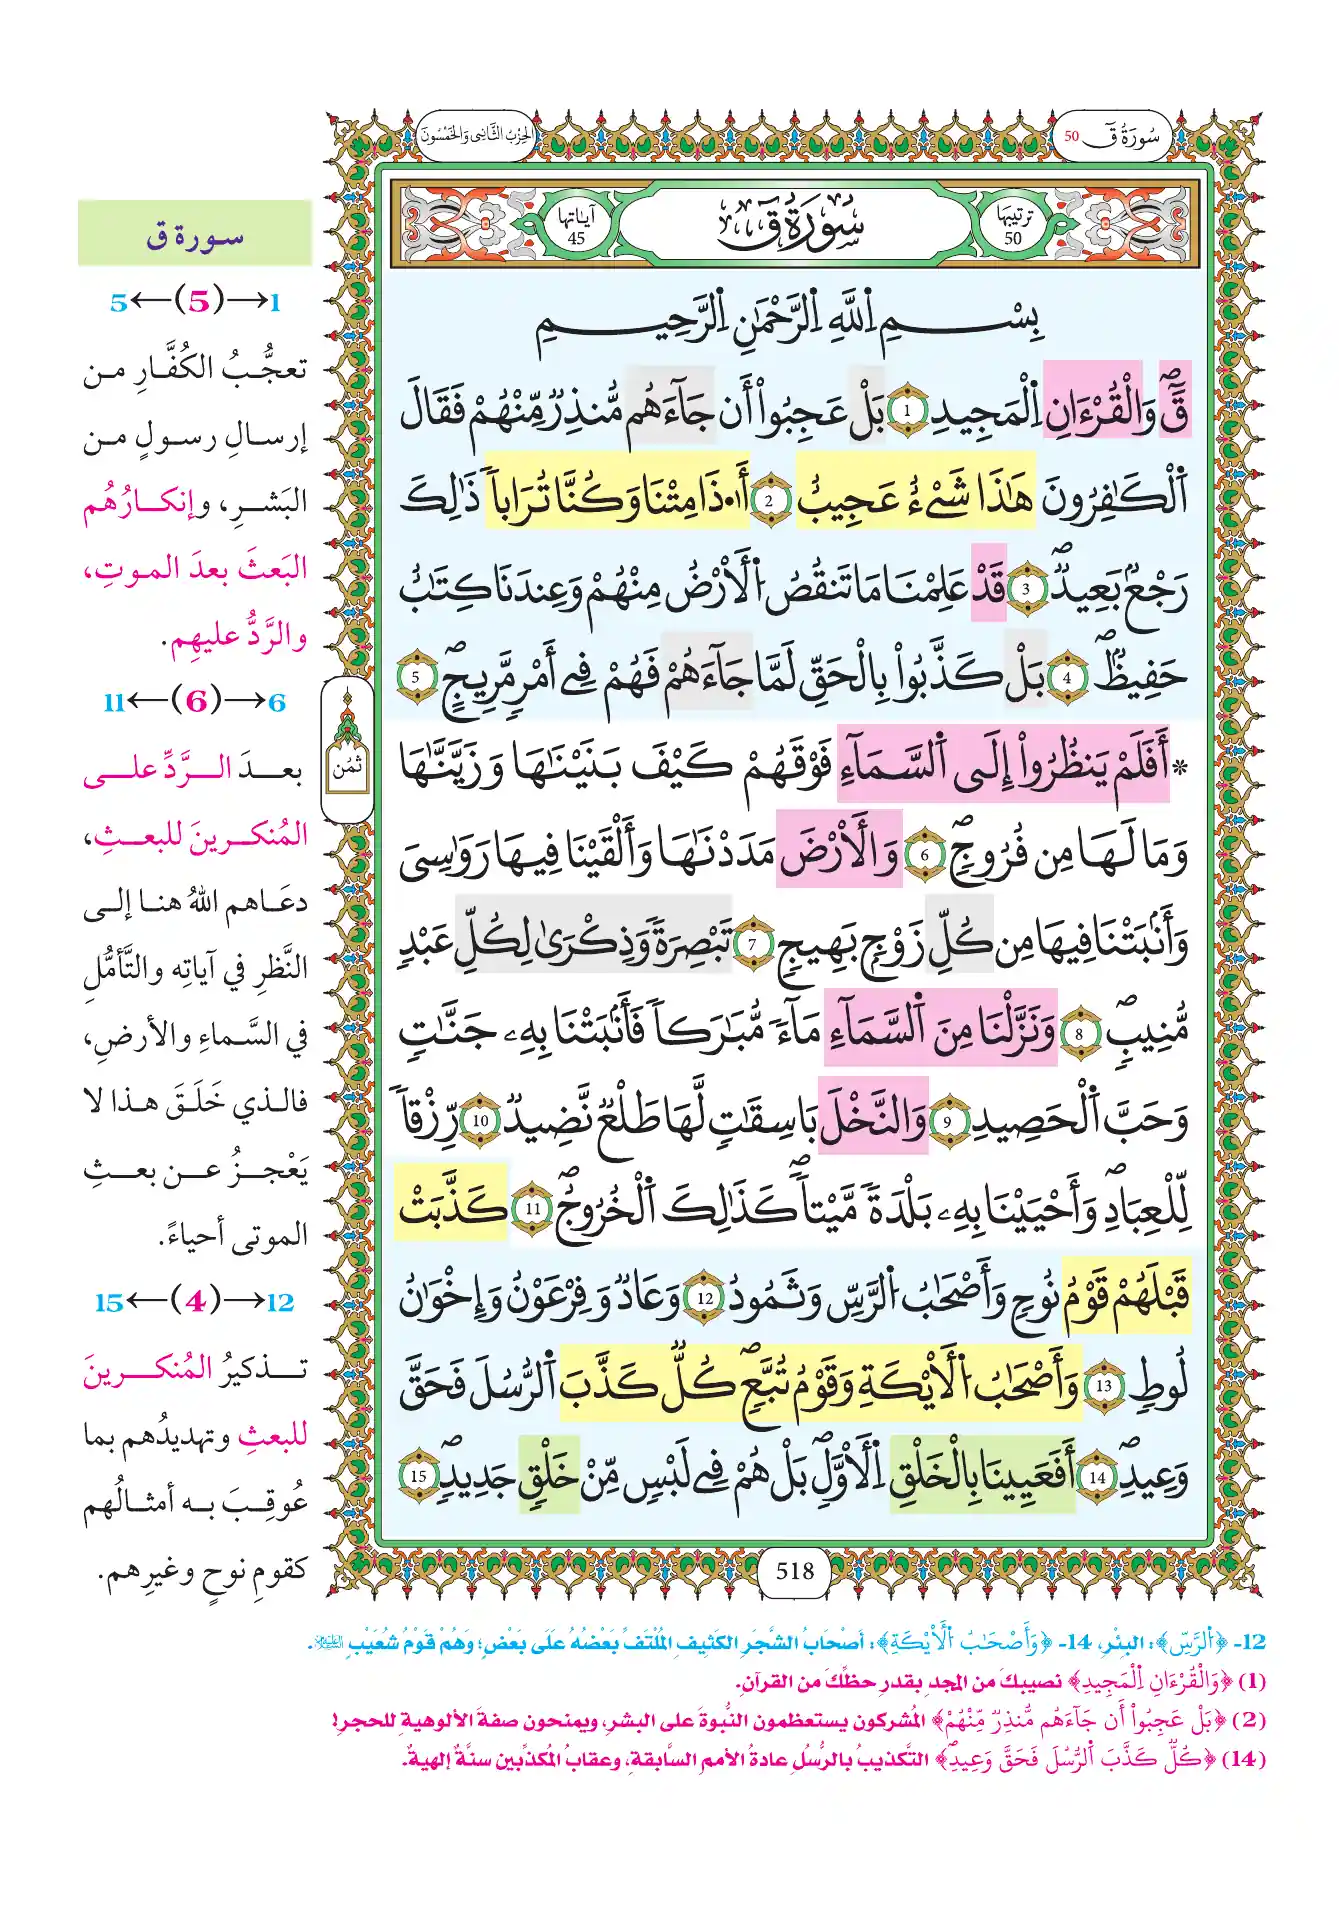 سُورَةُ قَ 50
الحِزْبُ الثَّانِي وَالخَمْسُونَ
ترتيبها 50
سُورَةُ قَ
آيَاتها 45
بِسْمِ اِ۬للَّهِ اِ۬لرَّحْمَٰنِ اِ۬لرَّحِيمِ
قَٓۖ وَالْقُرْءَانِ اِ۬لْمَجِيدِ 1 بَلْ عَجِبُوٓاْ أَن جَآءَهُم مُّنذِرٞ مِّنْهُمْ فَقَالَ
اَ۬لْكَٰفِرُونَ هَٰذَا شَےْءٌ عَجِيبٌ 2 أَ۟ذَا مِتْنَا وَكُنَّا تُرَاباٗۖ ذَٰلِكَ
رَجْعُۢ بَعِيدٞۖ 3 قَدْ عَلِمْنَا مَا تَنقُصُ اُ۬لْأَرْضُ مِنْهُمْ وَعِندَنَا كِتَٰبٌ
حَفِيظٞۖ 4 بَلْ كَذَّبُواْ بِالْحَقِّ لَمَّا جَآءَهُمْ فَهُمْ فِےٓ أَمْرٖ مَّرِيجٍۖ 5
* أَفَلَمْ يَنظُرُوٓاْ إِلَى اَ۬لسَّمَآءِ فَوْقَهُمْ كَيْفَ بَنَيْنَٰهَا وَزَيَّنَّٰهَا
وَمَا لَهَا مِن فُرُوجٖۖ 6 وَالْأَرْضَ مَدَدْنَٰهَا وَأَلْقَيْنَا فِيهَا رَوَٰسِيَ
وَأَنۢبَتْنَا فِيهَا مِن كُلِّ زَوْجِۢ بَهِيجٖ 7 تَبْصِرَةٗ وَذِكْرَىٰ لِكُلِّ عَبْدٖ
مُّنِيبٖۖ 8 وَنَزَّلْنَا مِنَ اَ۬لسَّمَآءِ مَآءٗ مُّبَٰرَكاٗ فَأَنۢبَتْنَا بِهِۦ جَنَّٰتٖ
وَحَبَّ اَ۬لْحَصِيدِ 9 وَالنَّخْلَ بَاسِقَٰتٖ لَّهَا طَلْعٞ نَّضِيدٞ 10 رِّزْقاٗ
لِّلْعِبَادِۖ وَأَحْيَيْنَا بِهِۦ بَلْدَةٗ مَّيْتاٗۖ كَذَٰلِكَ اَ۬لْخُرُوجُۖ 11 كَذَّبَتْ
قَبْلَهُمْ قَوْمُ نُوحٖ وَأَصْحَٰبُ اُ۬لرَّسِّ وَثَمُودُ 12 وَعَادٞ وَفِرْعَوْنُ وَإِخْوَٰنُ
لُوطٖ 13 وَأَصْحَٰبُ اُ۬لْأَيْكَةِ وَقَوْمُ تُبَّعٖۖ كُلّٞ كَذَّبَ اَ۬لرُّسُلَ فَحَقَّ
وَعِيدِۖ 14 أَفَعَيِينَا بِالْخَلْقِ اِ۬لْأَوَّلِۖ بَلْ هُمْ فِے لَبْسٖ مِّنْ خَلْقٖ جَدِيدٖۖ 15
ثُمُن
518
سورة ق
1→(5)←5
تعجُّبُ الكُفَّارِ من
إرسالِ رسولٍ من
البَشرِ، وإنكارُهُم
البَعثَ بعدَ الموتِ،
والرَّدُّ عليهِم.
6→(6)←11
بعدَ الرَّدِّ على
المُنكرينَ للبعثِ،
دعَاهم اللهُ هنا إلى
النَّظرِ في آياتِه والتَّأمُّلِ
في السَّماءِ والأرضِ،
فالذي خَلَقَ هذا لا
يَعْجزُ عن بعثِ
الموتى أحياءً.
12→(4)←15
تذكيرُ المُنكرينَ
للبعثِ وتهديدُهم بما
عُوقِبَ به أمثالُهم
كقومِ نوحٍ وغيرِهم.
12- ﴿اُ۬لرَّسِّ﴾: البِئْرِ، 14- ﴿وَأَصْحَٰبُ اُ۬لْأَيْكَةِ﴾: أَصْحَابُ الشَّجَرِ الكَثِيفِ المُلْتَفِّ بَعْضُهُ عَلَى بَعْضٍ؛ وَهُمْ قَوْمُ شُعَيْبٍ عليه السلام.
(1) ﴿وَالْقُرْءَانِ اِ۬لْمَجِيدِ﴾ نصيبكَ من المجدِ بقدرِ حظِّكَ من القرآنِ.
(2) ﴿بَلْ عَجِبُوٓاْ أَن جَآءَهُم مُّنذِرٞ مِّنْهُمْ﴾ المُشركون يستعظمون النُّبوةَ على البشرِ، ويمنحون صفةَ الألوهيةِ للحجرِ!
(14) ﴿كُلّٞ كَذَّبَ اَ۬لرُّسُلَ فَحَقَّ وَعِيدِۖ﴾ التَّكذيبُ بالرُّسُلِ عادةُ الأممِ السَّابقةِ، وعقابُ المُكذِّبين سنَّةٌ إلهيةٌ.